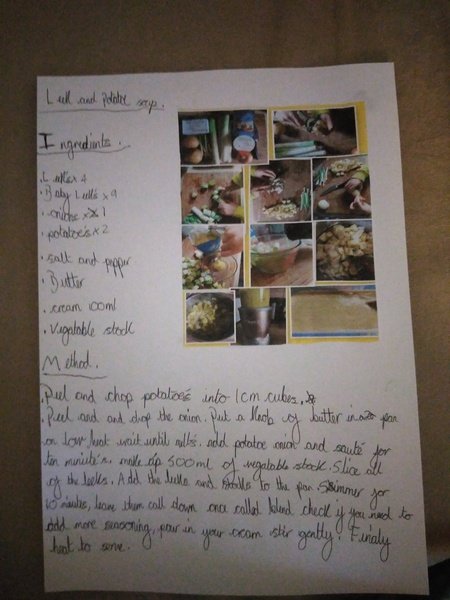 Leek and Potatoe soup.
Ingredients.
Leeks x 4
• Baby Leeks x 9
• onions x 1
• potatoe's x 2
• salt and pepper
• Butter
• cream 100ml
• Vegatable stock
Method.
• Peel and chop potatoe's into 1cm cubes.
• Peel and and chop the onion. Put a knob of butter in a pan
on low heat wait until melts. add potatoe onion and sauté for
ten minute's. make up 500ml of vegatable stock. Slice all
of the leeks. Add the leeks and stocks to the pan. Simmer for
10 minutes, leave them call down once called blend check if you need to
add more seasoning, pour in your cream stir gently. Finaly
heat to serve.